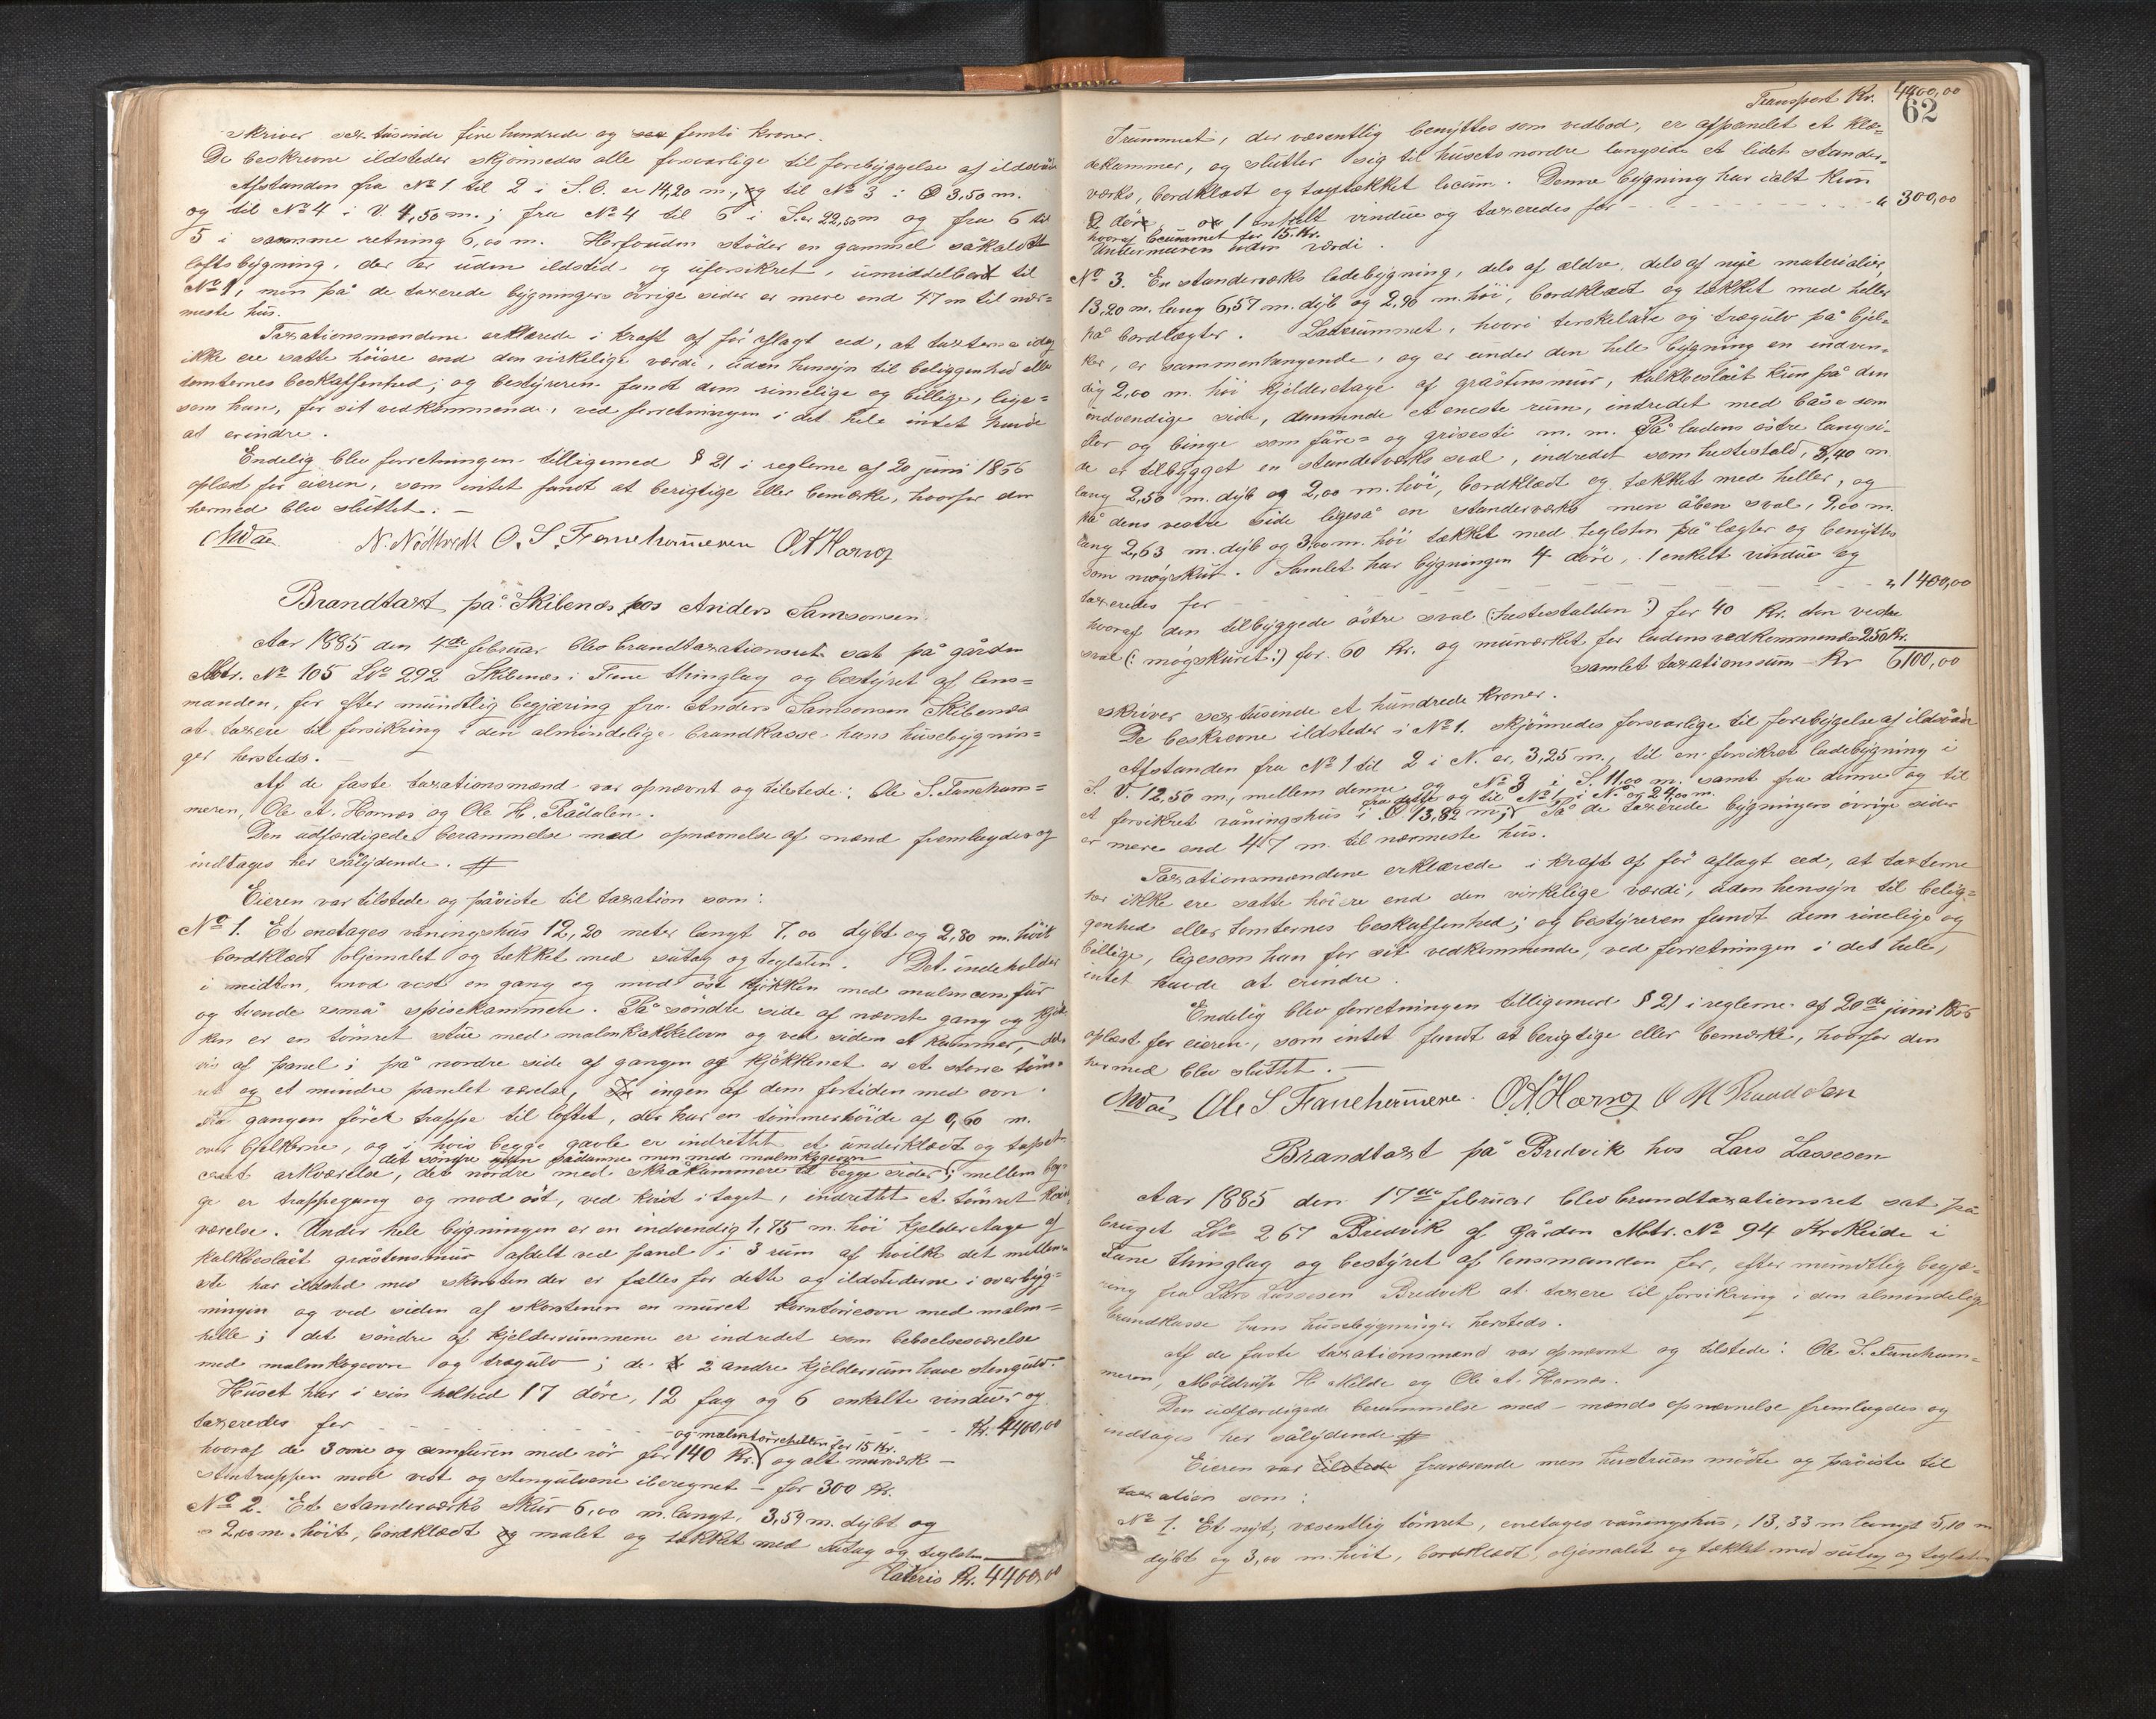 skriver sex tusinde fire hundrede og femti kroner.
De beskrevne ildsteder skjönnedes alle forsvarlige til forebyggelse af ildsvåde
Afstanden fra No 1 til 2 i S.O. er 14,20 m., og til No 3 i O 3,50 m.
og til No 4 i V. 4,50 m.; fra No 4 til 6 i S. er 22,50 m og fra 6 til
5 i samme retning 6,00 m. Herforuden støder en gammel såkaldt
loftsbygning, der er uden ildsted og uforsikret, umiddelbart til
No 1, men på de taxerede bygningers övrige sider er mere end 47 m til nær-
meste hus.
Taxationsmændene erklærede i kraft af för aflagt ed, at taxterne idag
ikke ere satte höiere end den virkelige værdi, uden hensyn til beliggenhed eller
tomternes beskaffenhed; og bestyreren fandt dem rimelige og billige, lige=
som han, for sit vedkommende, ved forretningen i det hele intet havde
at erindre.
Endelig blev forretningen tilligemed § 21 i reglerne af 20 juni 1856
oplæst for eieren, som intet fandt at berigtige eller bemærke, hvorfor den
hermed blev sluttet. —
N. Nödtvedt O. S. Fanehammeren O A Hornes
Brandtaxt på Skibenæs hos Anders Samsonsen.
Aar 1885 den 4de februar blev brandtaxationsret sat på gården
Matr. No 105 Lno 292 Skibenæs i Fane thinglag og bestyret af lens=
manden, for efter mundtlig begjæring fra Anders Samsonsen Skibenæs
at taxere til forsikring i den almindelige brandkasse hans husebygnin=
ger hersteds. —
Af de faste taxationsmænd var opnævnt og tilstede: Ole S. Faneham=
meren, Ole A. Hornes og Ole H. Rådalen.
Den udfærdigede berammelse med opnævnelse af mænd fremlagdes og
indtages her sålydende. #
Eieren var tilstede og påviste til taxation som:
No 1. Et enetages våningshus 12,20 meter langt 7,00 dybt og 2,80 m. höit
bordklædt oljemalet og tækket med sutag og teglsten. Det indeholder
i midten, mod vest en gang og mod öst kjökken med malmcomfur
og tvende små spisekammere. På söndre side af nævnte gang og kjök-
ken er en tömret stue med malmkakkelovn og ved siden et kammer, del-
vis af panel; på nordre side af gangen og kjökkenet er et större töm=
ret og et mindre panelet værelse, ingen af dem fortiden med ovn.
Fra gangen förer trappe til loftet, der har en tömmerhöide af 0,60 m.
over bjelkerne, og i hvis begge gavle er indrettet et underklædt og tapet-
det söndre uden sådanne men med malmkogeovn
ceret arkværelse, det nordre med skråkammere til begge sider; mellem beg=
ge er trappegang og mod öst, ved kvist i taget, indrettet et tömret kvist
værelse. Under hele bygningen er en indvendig 1,75 m. höi kjelderetage af
kalkbeslået gråstensmur afdelt ved panel i 3 rum af hvilke det mellem=
ste har ildsted med skorsten der er fælles for dette og ildstederne i overbyg=
ningen og ved siden af skorstenen en muret korntörreovn med malm=
helle; det söndre af kjelderrummene er indredet som beboelsesværelse
med malmkogeovn og trægulv; de 2 andre kjelderrum have stengulv.
Huset har i sin helhed 17 döre, 12 fag og 6 enkelte vinduer og
taxeredes for - - - - - - - - Kr. 4400,00
og malmtörrehellen for 15 Kr.
hvoraf de 3 ovne og comfuren med rör for 140 Kr. og alt murværk —
stentrappen mod vest og stengulvene iberegnet — for 300 Kr.
No 2. Et standerværks skur 6,00 m. langt, 3,59 m. dybt og
2,00 m. höit, bordklædt og malet og tækket med sutag og teglsten
Lateris Kr. 4400,00
Transport Kr. 4400,00
62
I rummet, der væsentlig benyttes som vedbod, er afpanelet et klæ=
dekammer, og slutter sig til husets nordre langside et lidet stander=
værks, bordklædt og tagtækket locum. Denne bygning har ialt kun
2 döre, 1 enkelt vindue og taxeredes for - - - - - " 300,00
hvoraf locummet for 15. Kr.
Undermuren uden værdi.
No 3. En standerværks ladebygning, dels af ældre, dels af nye materialier,
13,20 m. lang 6,57 m. dyb og 2,90 m. höi, bordklædt og tækket med heller
på bordlægter. Laderummet, hvori terskelåve og trægulv på bjel=
ker, er sammenhængende, og er under den hele bygning en indven=
dig 2,00 m. höi kjelderetage af gråstensmur, kalkbeslået kun på den
indvendige side, dannende et eneste rum, indredet med båse som
flor og binge som fåre= og grisesti m. m. På ladens östre langsi=
de er tilbygget en standerværks sval, indredet som hestestald, 3,40 m.
lang 2,50 m. dyb og 2,00 m. höi, bordklædt og tækket med heller, og
på dens vestre side ligeså en standerværks men åben sval, 9,00 m.
lang 2,63 m. dyb og 3,00 m. höi tækket med teglsten på lægter og benyttes
som mögskur. Samlet har bygningen 4 döre, 1 enkelt vindue og
taxeredes for - - - - - - - - " 1400,00
hvoraf den tilbyggede östre sval (: hestestalden :) for 40 Kr. den vestre
sval (: mögskuret :) for 60 Kr. og murværket for ladens vedkommende 250 Kr.
samlet taxationssum — Kr 6100,00
skriver sex tusinde et hundrede kroner.
De beskrevne ildsteder i No 1. skjönnedes forsvarlige til forebyggelse af ildsvåde
Afstanden fra No 1 til 2 i N. er 3,25 m., til en forsikret ladebygning i
S. V. 12,50 m., mellem denne og No 3 i S. 11,00 m. samt fra denne og til
fra dette og til No 1 i N. og 24,00 m.
et forsikret våningshus i O. 13,82 m; På de taxerede bygningers övrige sider
er mere end 47 m. til nærmeste hus.
Taxationsmændene erklærede i kraft af för aflagt eed, at taxterne
her ikke ere satte höiere end den virkelige værdi, uden hensyn til belig=
genhed eller tomternes beskaffenhed; og bestyreren fandt dem rimelige og
billige, ligesom han for sit vedkommende, ved forretningen i det hele,
intet havde at erindre.
Endelig blev forretningen tilligemed § 21 i reglerne af 20de juni 1856
oplæst for eieren, som intet fandt at berigtige eller bemærke, hvorfor den
hermed blev sluttet. —
Ole S Fanehammere. O. A. Hornes O H Raadalen
Brandtaxt på Bredvik hos Lars Lassesen
Aar 1885 den 17de februar blev brandtaxationsret sat på
bruget Lno 267 Bredvik af gården Matr. No 94 Krokeide i
Fane thinglag og bestyret af lensmanden for, efter mundtlig begjæ-
ring fra Lars Lassesen Bredvik at taxere til forsikring i den almindelige
brandkasse hans husebygninger hersteds.
Af de faste taxationsmænd var opnævnt og tilstede: Ole S. Faneham=
meren, Möldrup H. Milde og Ole A. Hornes.
Den udfærdigede berammelse med mænds opnævnelse fremlagdes og
indtages her sålydende #
Eieren var tilstede fraværende men hustruen mödte og påviste til
taxation som:
No 1. Et nyt, væsentlig tömret, enetages våningshus, 13,33 m langt 5,10 m
dybt og 3,00 m. höit, bordklædt, oljemalet og tækket med sutag og teglsten